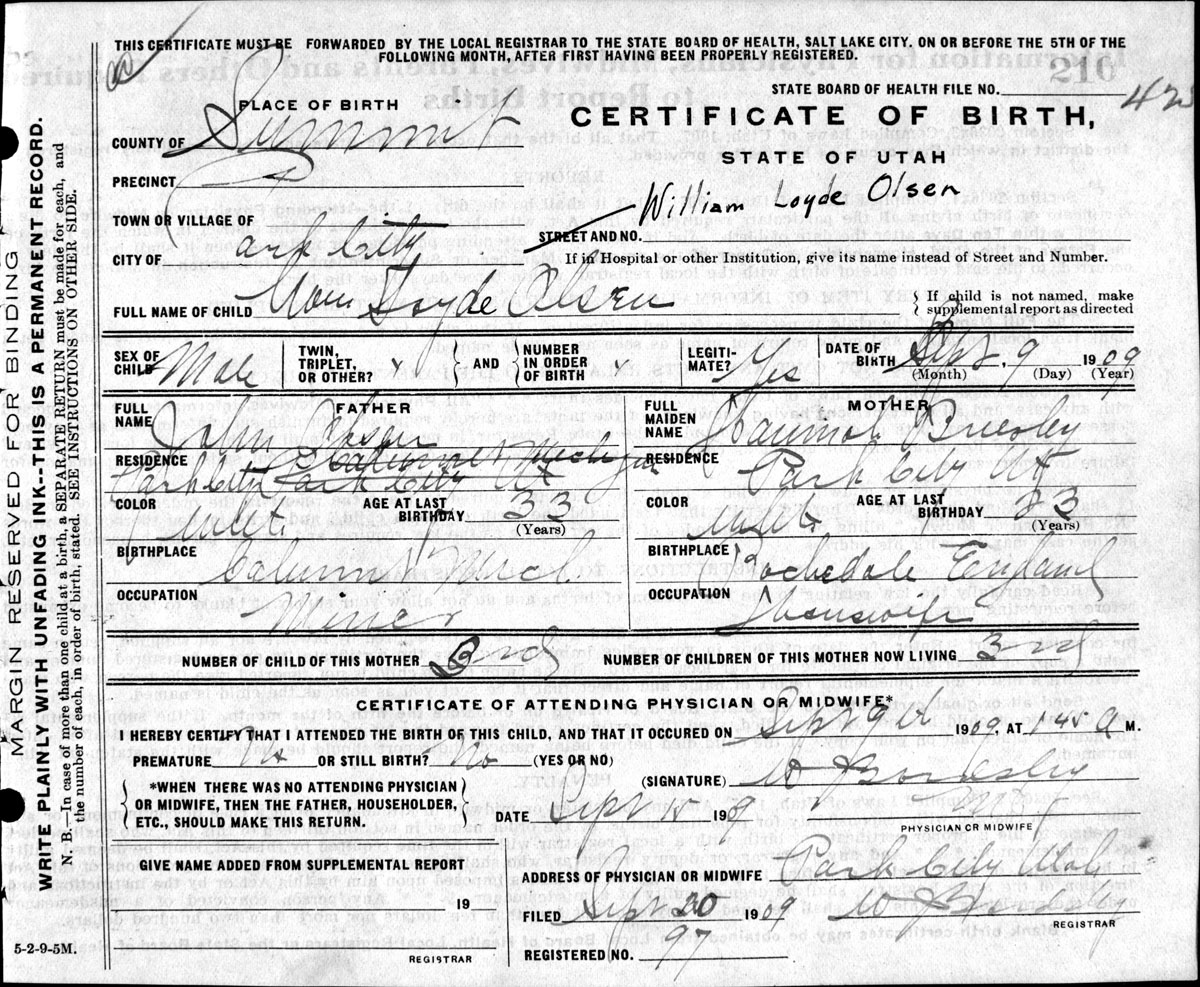 THIS CERTIFICATE MUST BE FORWARDED BY THE LOCAL REGISTRAR TO THE STATE BOARD OF HEALTH, SALT LAKE CITY. ON OR BEFORE THE 5TH OF THE
FOLLOWING MONTH, AFTER FIRST HAVING BEEN PROPERLY REGISTERED.
STATE BOARD OF HEALTH FILE NO.
PLACE OF BIRTH
CERTIFICATE OF BIRTH,
COUNTY OF Summit
STATE OF UTAH
PRECINCT
William Loyde Olsen
TOWN OR VILLAGE OF
STREET AND NO.
CITY OF Park City
If in Hospital or other Institution, give its name instead of Street and Number.
FULL NAME OF CHILD Wm Loyde Olsen
If child is not named, make supplemental report as directed
SEX OF CHILD Male TWIN, TRIPLET, OR OTHER? x AND NUMBER IN ORDER OF BIRTH LEGITIMATE? Yes DATE OF BIRTH Sept 9 1909
(Month) (Day) (Year)
FATHER
FULL NAME John Olsen
RESIDENCE Park City Park City Ut
COLOR White AGE AT LAST BIRTHDAY 33
(Years)
BIRTHPLACE Mich
OCCUPATION Miner
MOTHER
FULL MAIDEN NAME Hannah
RESIDENCE Park City Ut
COLOR White AGE AT LAST BIRTHDAY 33
(Years)
BIRTHPLACE Rochedale England
OCCUPATION Housewife
NUMBER OF CHILD OF THIS MOTHER 3
NUMBER OF CHILDREN OF THIS MOTHER NOW LIVING 3
CERTIFICATE OF ATTENDING PHYSICIAN OR MIDWIFE*
I HEREBY CERTIFY THAT I ATTENDED THE BIRTH OF THIS CHILD, AND THAT IT OCCURED ON Sept 9th 1909, AT 1:45 A M.
PREMATURE No OR STILL BIRTH? No (YES OR NO)
(SIGNATURE) W
*WHEN THERE WAS NO ATTENDING PHYSICIAN
OR MIDWIFE, THEN THE FATHER, HOUSEHOLDER,
ETC., SHOULD MAKE THIS RETURN.
DATE Sept 1909
PHYSICIAN OR MIDWIFE
GIVE NAME ADDED FROM SUPPLEMENTAL REPORT
ADDRESS OF PHYSICIAN OR MIDWIFE Park City Utah
19
FILED Sept 20 1909
REGISTRAR
REGISTERED NO. 97
REGISTRAR
5-2-9-5M.
MARGIN RESERVED FOR BINDING
WRITE PLAINLY WITH UNFADING INK--THIS IS A PERMANENT RECORD.
N. B.—In case of more than one child at a birth, a SEPARATE RETURN must be made for each, and
the number of each, in order of birth, stated. SEE INSTRUCTIONS ON OTHER SIDE.